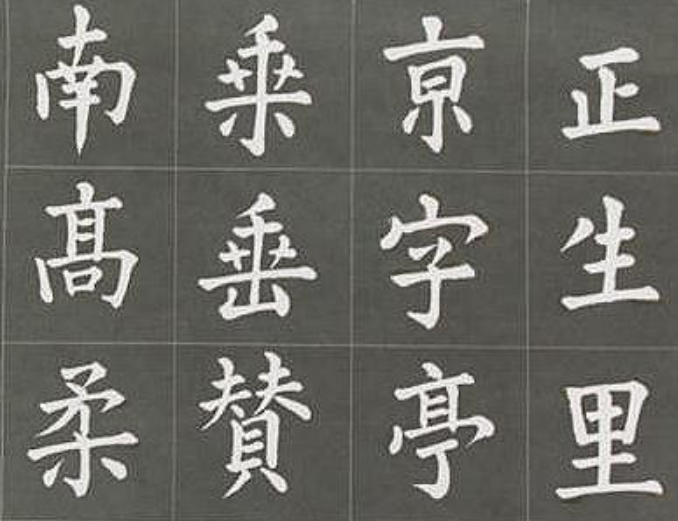 正生里
亰字亭
乘垂賛
南髙柔